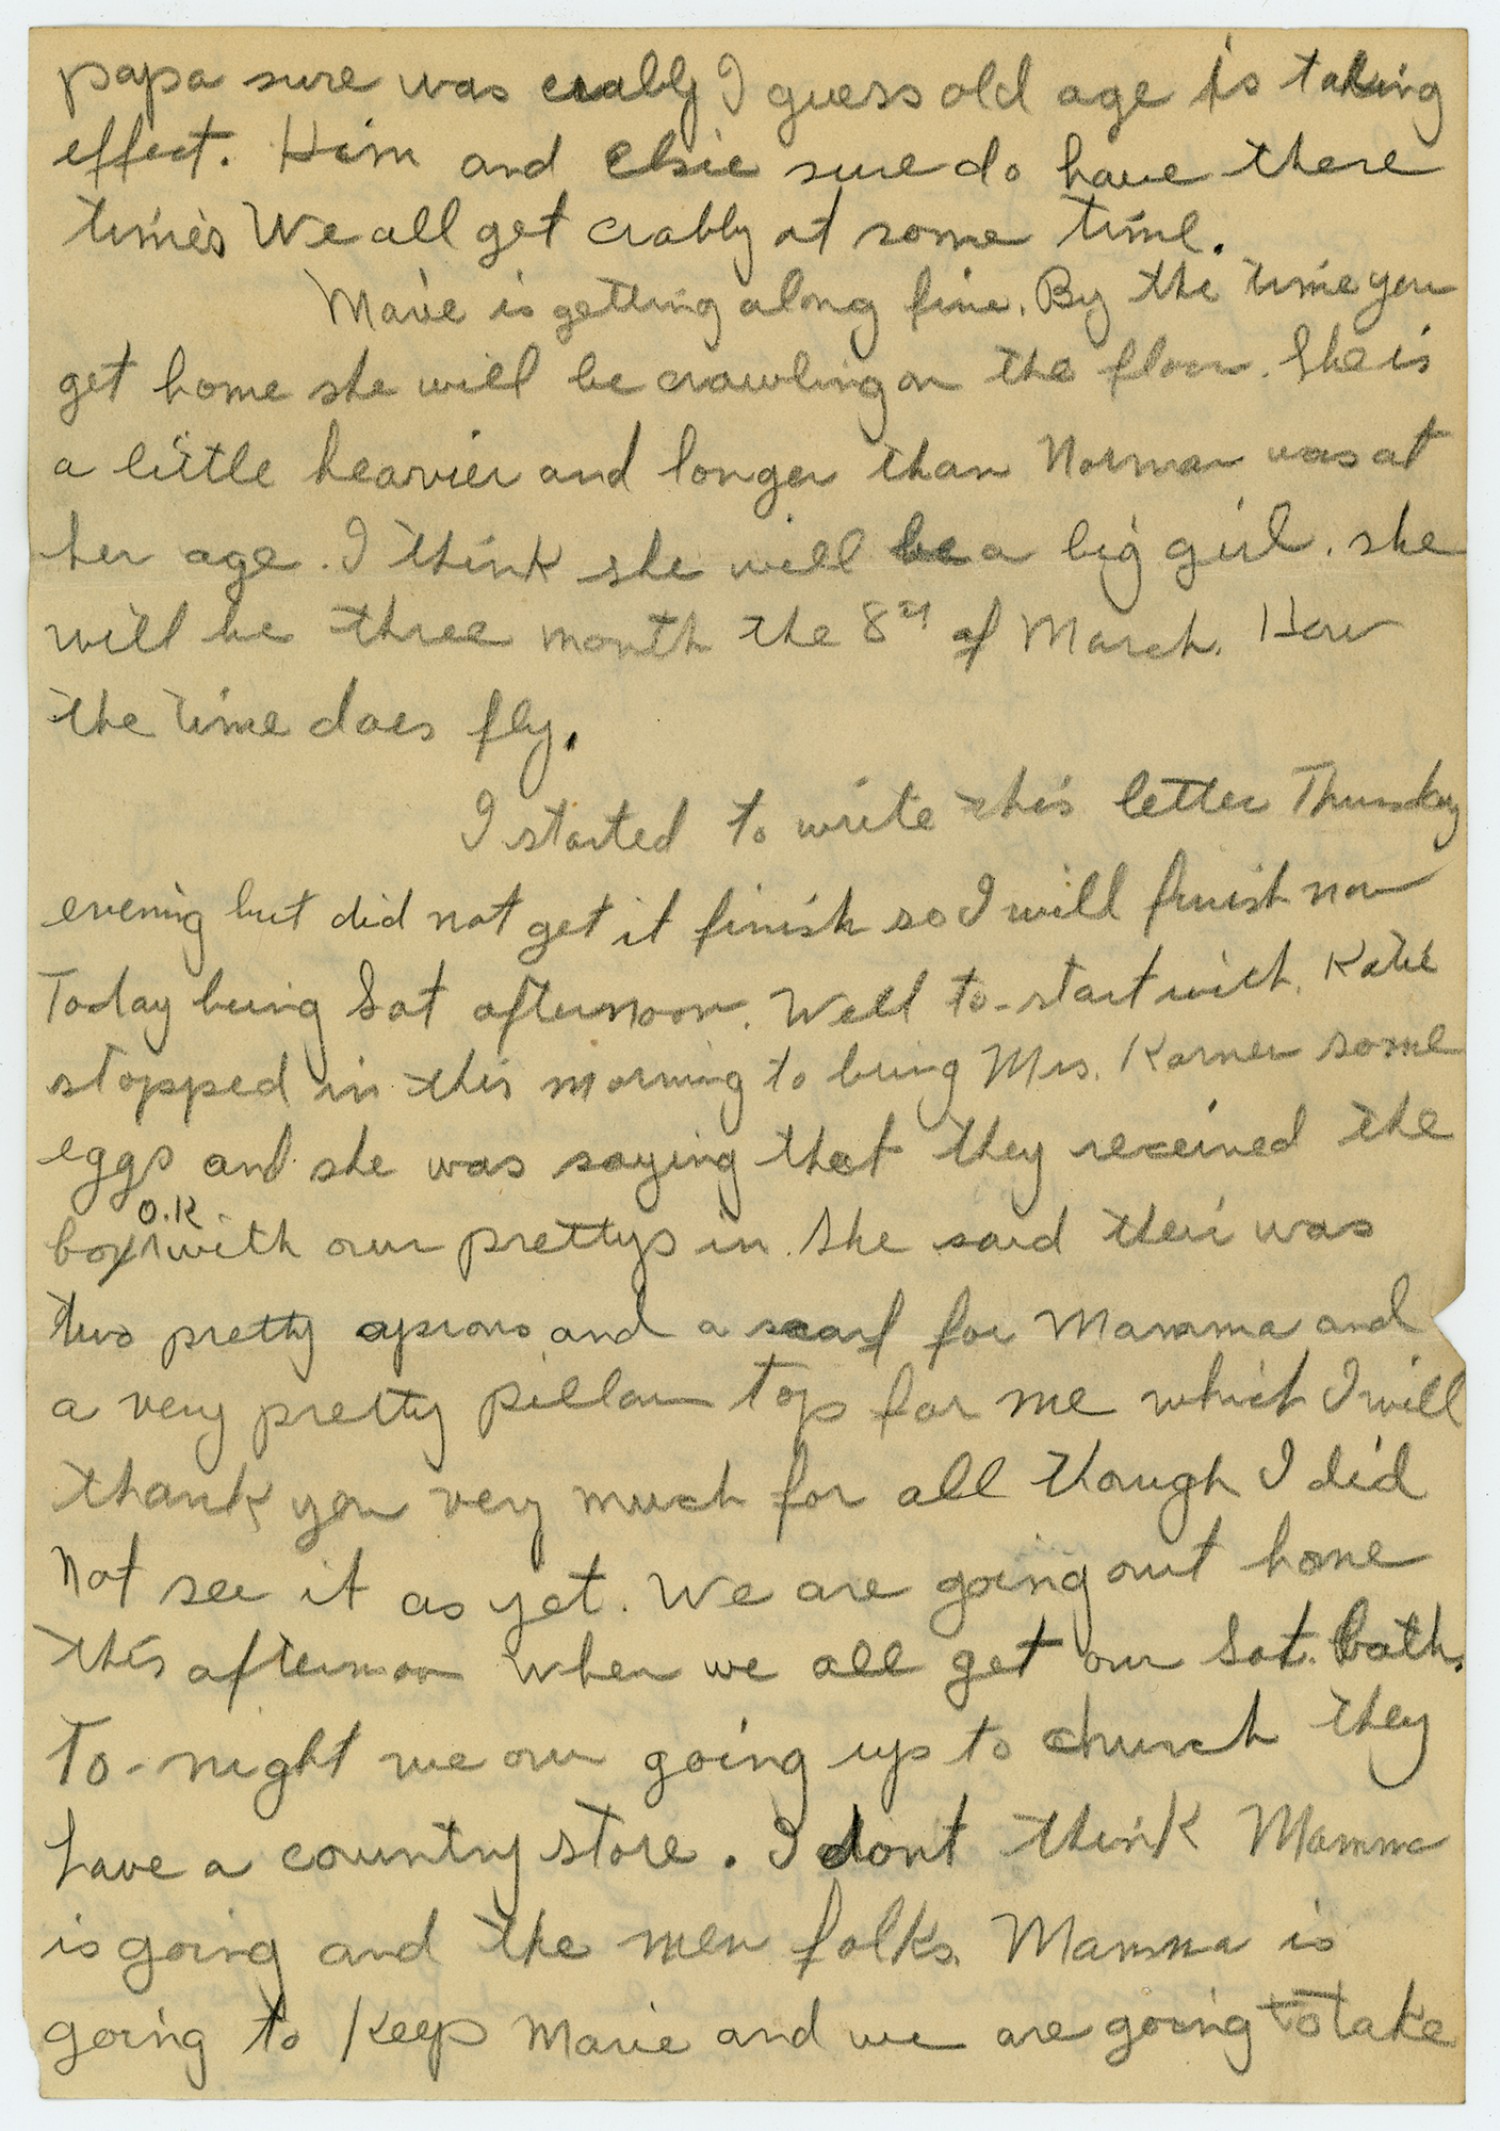 papa sure was crably I guess old age is taking
effect. Him and Elsie sure do have there
times We all get crably at some time.
Marie is getting along fine. By the time you
get home she will be crawling on the floor. She is
a little heavier and longer than Norman was at
her age. I think she will be a big girl. she
will be three month the 8th of March. How
the time does fly.
I started to write this letter Thursday
evening but did not get it finish so I will finish now
Today being Sat afternoon. Well to-start with, Katie
stopped in this morning to bring Mrs. Karner some
eggs and she was saying that they received the
box O.K. with our prettys in. She said their was
two pretty aprons and a scarf for Mamma and
a very pretty pillow top for me which I will
thank you very much for all though I did
not see it as yet. We are going out home
this afternoon when we all get our Sat. bath.
To-night we our going up to church they
have a country store. I dont think Mamma
is going and the men folks. Mamma is
going to keep Marie and we are going to take